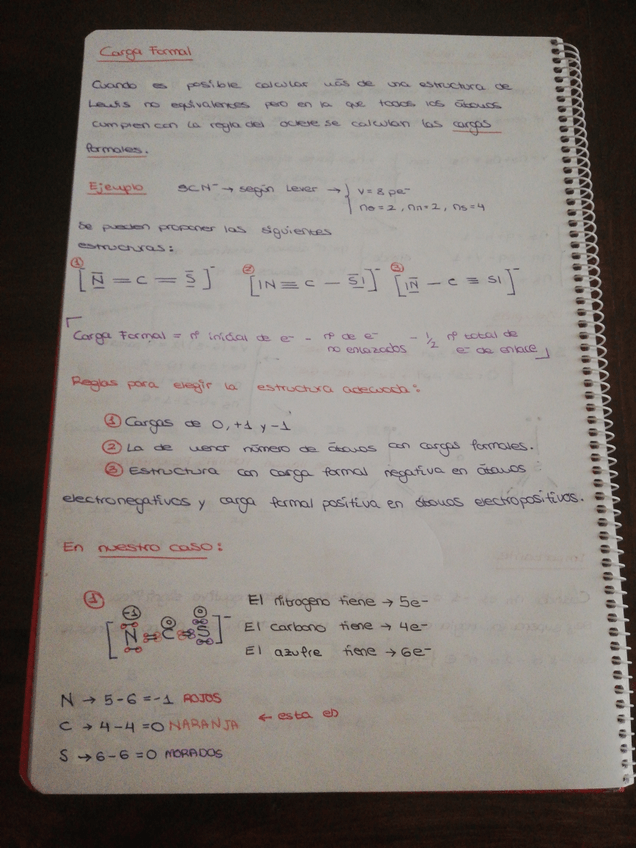 Carga Formal
Cuando es posible calcular más de una estructura de
Lewis no equivalentes pero en la que todos los átomos
cumplen con la regla del octete se calculan las cargas
formales.
Ejemplo SCN⁻ → según Lever → { V = 8 pe⁻
no = 2, nn = 2, ns = 4
Se pueden proponer las siguientes
estructuras:
① [N̲̅ = C = S̲̅]⁻ ② [IN ≡ C − S̲̅I]⁻ ③ [IN̲̅ − C ≡ SI]⁻
Carga Formal = nº inicial de e⁻ − nº de e⁻ no enlazados − 1/2 nº total de e⁻ de enlace
Reglas para elegir la estructura adecuada:
① Cargas de 0, +1 y −1
② La de menor número de átomos con cargas formales.
③ Estructura con carga formal negativa en átomos
electronegativos y carga formal positiva en átomos electropositivos.
En nuestro caso:
① [N = C = S]⁻ -1 0 0
El nitrogeno tiene → 5e⁻
El carbono tiene → 4e⁻
El azufre tiene → 6e⁻
N → 5 − 6 = −1 ROJOS
C → 4 − 4 = 0 NARANJA ← esta es
S → 6 − 6 = 0 MORADOS